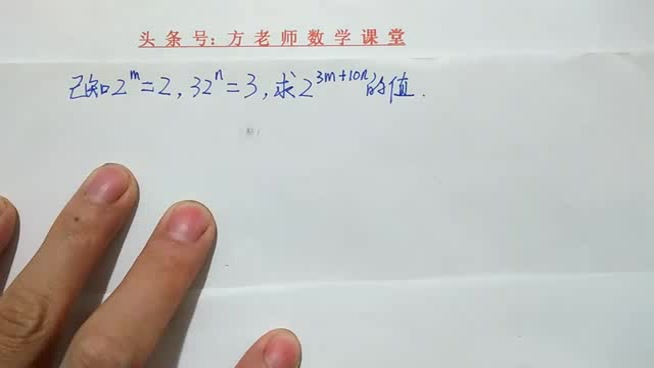 头条号:方老师数学课堂
已知2^m=2,32^n=3,求2^{3m+10n}的值.